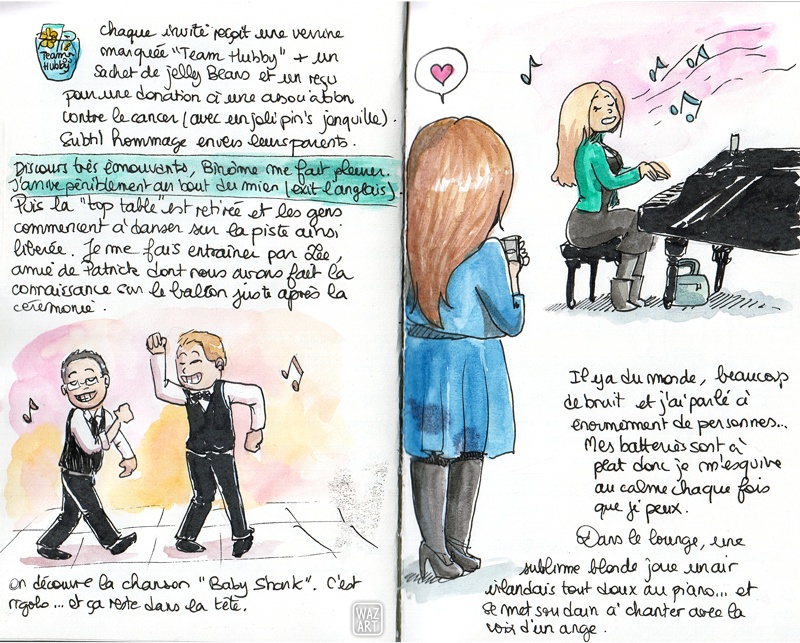 Team
Hubby
Chaque invité reçoit une verrine
marquée "Team Hubby" + un
sachet de jelly Beans et un reçu
pour une donation à une association
contre le cancer (avec un joli pin's jonquille).
Subtil hommage envers leurs parents.
Discours très émouvants, Binôme me fait pleurer.
J'arrive péniblement au bout du mien (exit l'anglais).
Puis la "top table" est retirée et les gens
commencent à danser sur la piste ainsi
libérée. Je me fais entraîner par Zée,
amie de Patrick dont nous avons fait la
connaissance sur le balcon juste après la
cérémonie.
On découvre la chanson "Baby Shark". C'est
rigolo... et ça reste dans la tête.
WAZ
ART
Il y a du monde, beaucoup
de bruit et j'ai parlé à
énormément de personnes...
Mes batteries sont à
plat donc je m'esquive
au calme chaque fois
que je peux.
Dans le lounge, une
sublime blonde joue un air
irlandais tout doux au piano... et
se met soudain à chanter avec la
voix d'un ange.